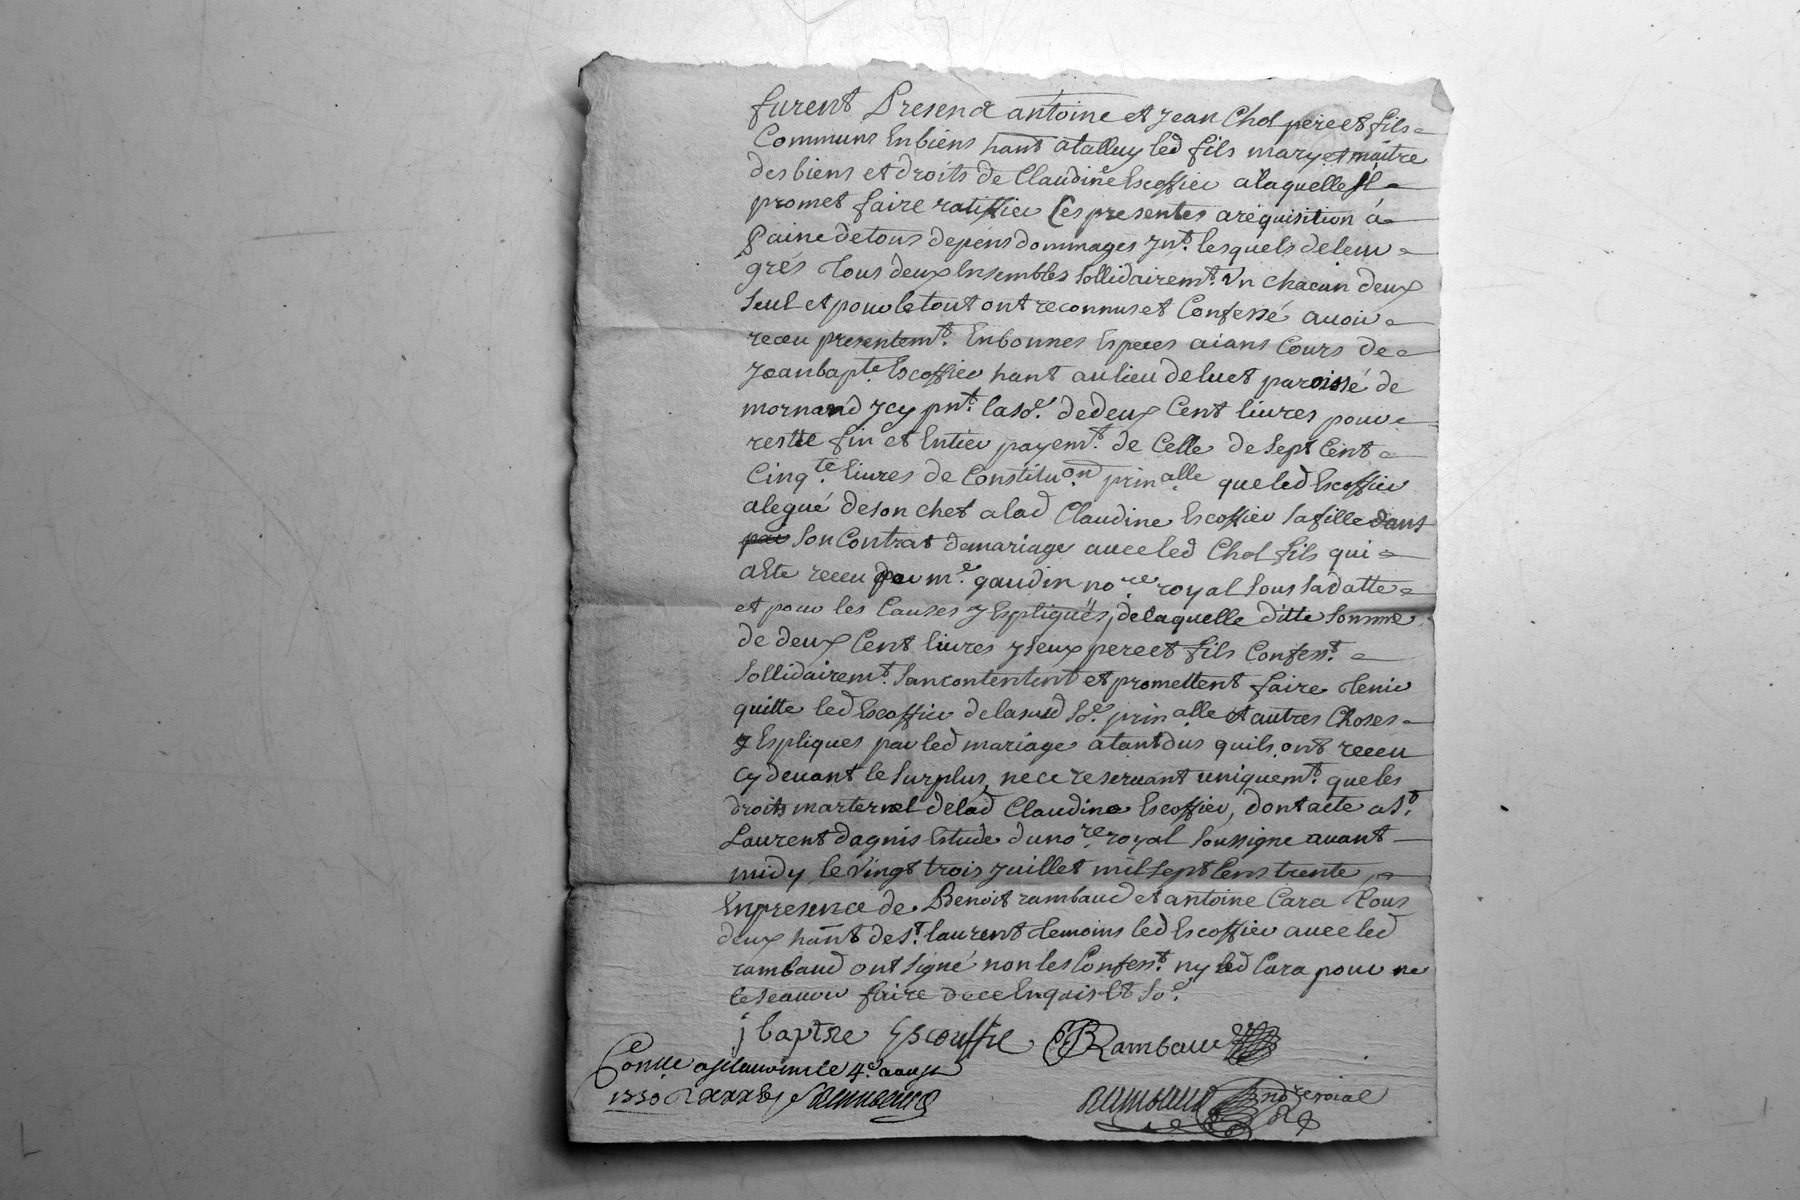 furent Presend antoine et jean Chol pere et fils
Communs En biens hant a talluy led fils mary et maitre
des biens et droits de Claudine Escoffier a laquelle Il
promet faire ratiffier Ces presentes a requisition á
paine de tous depens dommages jnt. lesquels de leur
grés tous deux Ensembles sollidairemt. Vn chacun deux
seul et pour le tout ont reconnus et Confessé avoir
receu presentemt. En bonnes Especes aians Cours de
Jean bapte. Escoffier hant au lieu de luet paroisse de
mornand jcy pnt. la se. de deux Cent livres pour
reste fin et Entier payemt. de Celle de sept Cent
Cinqte. livres de Constituon. prinalle que led Escoffier
a legué de son chef a lad Claudine Escoffier sa fille dans
par son Contrat de mariage avec led Chol fils qui
a Ete receu par me. gaudin nore royal sous sa datte
et pour les Causes y Espliqués, de laquelle ditte somme
de deux Cent livres jceux pere et fils Confesst.
sollidairemt. san contentent et promettent faire tenir
quitte led Escoffier de la susd se. prinalle et autres Choses
y Espliques par led mariage a tant dus quils ont receu
cy devant le surplus, ne ce reservant uniquemt. que les
droits marternel de lad Claudine Escoffier, dont acte a St.
Laurent dagnis Estude du nore. royal soussigne avant
midy le Vingt trois juillet mil sept Cens trente
En presence de Benoit rambaud et antoine Cara tous
deux hant de St. laurent temoins led Escoffier avec led
rambaud ont signé non les Confesst. ny led Cara pour ne
le scavoir faire de ce Enquis Et se.
j baptte Escouffie B Rambaud
Conlle a le 4e. aoust
1730 Rambaud nore roial